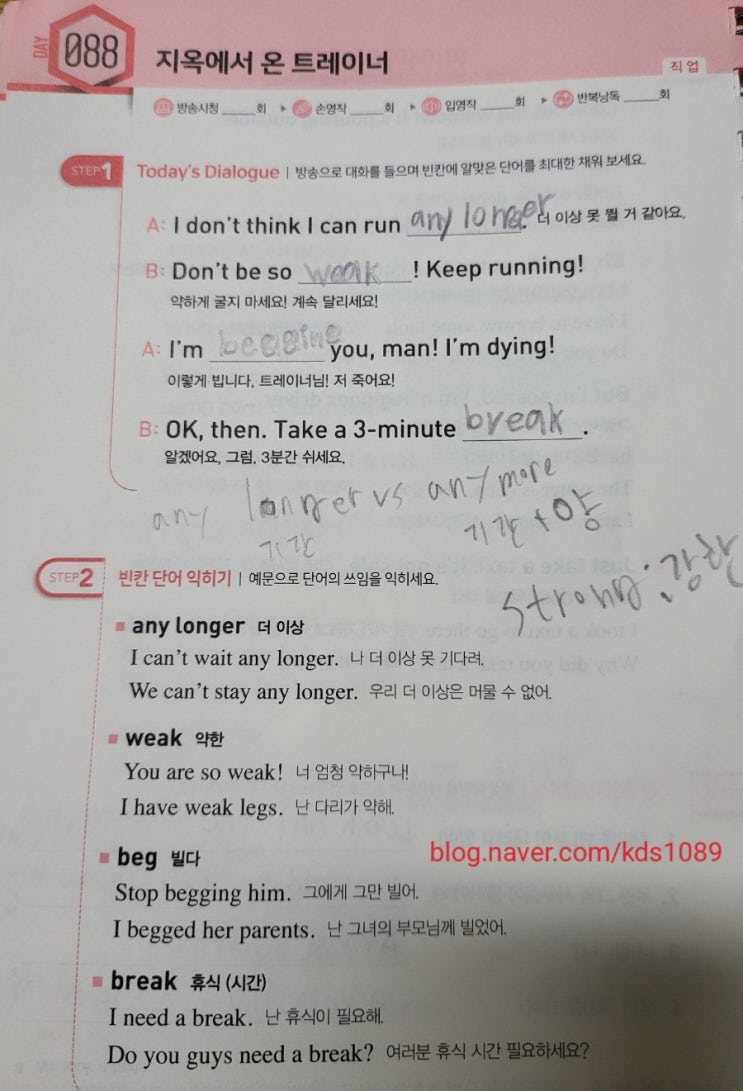 DAY 088 지옥에서 온 트레이너
직업
방송시청 ____회 ▶ 손영작 ____회 ▶ 입영작 ____회 ▶ 반복낭독 ____회
STEP 1 Today's Dialogue | 방송으로 대화를 들으며 빈칸에 알맞은 단어를 최대한 채워 보세요.
A: I don't think I can run any longer. 더 이상 못 뛸 거 같아요.
B: Don't be so weak! Keep running!
약하게 굴지 마세요! 계속 달리세요!
A: I'm begging you, man! I'm dying!
이렇게 빕니다, 트레이너님! 저 죽어요!
B: OK, then. Take a 3-minute break.
알겠어요, 그럼. 3분간 쉬세요.
any longer vs any more
기간 기간+양
strong: 강한
STEP 2 빈칸 단어 익히기 | 예문으로 단어의 쓰임을 익히세요.
any longer 더 이상
I can't wait any longer. 나 더 이상 못 기다려.
We can't stay any longer. 우리 더 이상은 머물 수 없어.
weak 약한
You are so weak! 너 엄청 약하구나!
I have weak legs. 난 다리가 약해.
blog.naver.com/kds1089
beg 빌다
Stop begging him. 그에게 그만 빌어.
I begged her parents. 난 그녀의 부모님께 빌었어.
break 휴식 (시간)
I need a break. 난 휴식이 필요해.
Do you guys need a break? 여러분 휴식 시간 필요하세요?